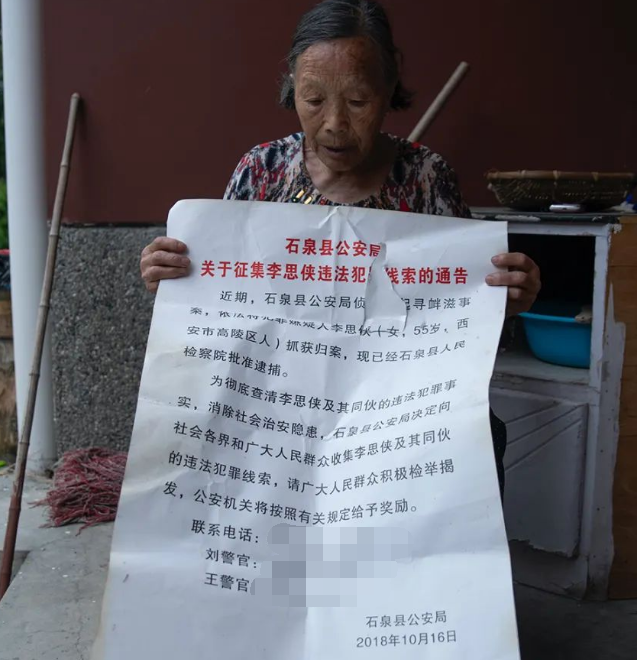 石泉县公安局
关于征集李思侠违法犯 线索的通告
近期，石泉县公安局侦 起寻衅滋事
案，依法将犯罪嫌疑人李思侠（女，55岁，西
安市高陵区人）抓获归案，现已经石泉县人民
检察院批准逮捕。
为彻底查清李思侠及其同伙的违法犯罪事
实，消除社会治安隐患，石泉县公安局决定向
社会各界和广大人民群众收集李思侠及其同伙
的违法犯罪线索，请广大人民群众积极检举揭
发，公安机关将按照有关规定给予奖励。
联系电话：
刘警官：
王警官
石泉县公安局
2018年10月16日